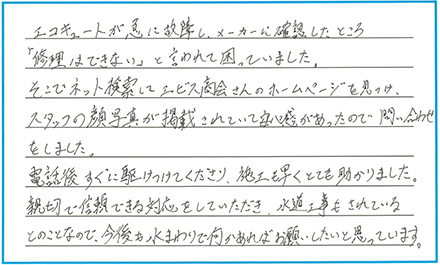 エコキュートが急に故障し、メーカーに確認したところ
「修理はできない」と言われて困っていました。
そこでネット検索してエビス商会さんのホームページを見つけ、
スタッフの顔写真が掲載されていて安心感があったので問い合わせ
をしました。
電話後すぐに駆けつけてくださり、施工も早くとても助かりました。
親切で信頼できる対応をしていただき、水道工事もされている
とのことなので、今後も水まわりで何かあればお願いしたいと思っています。